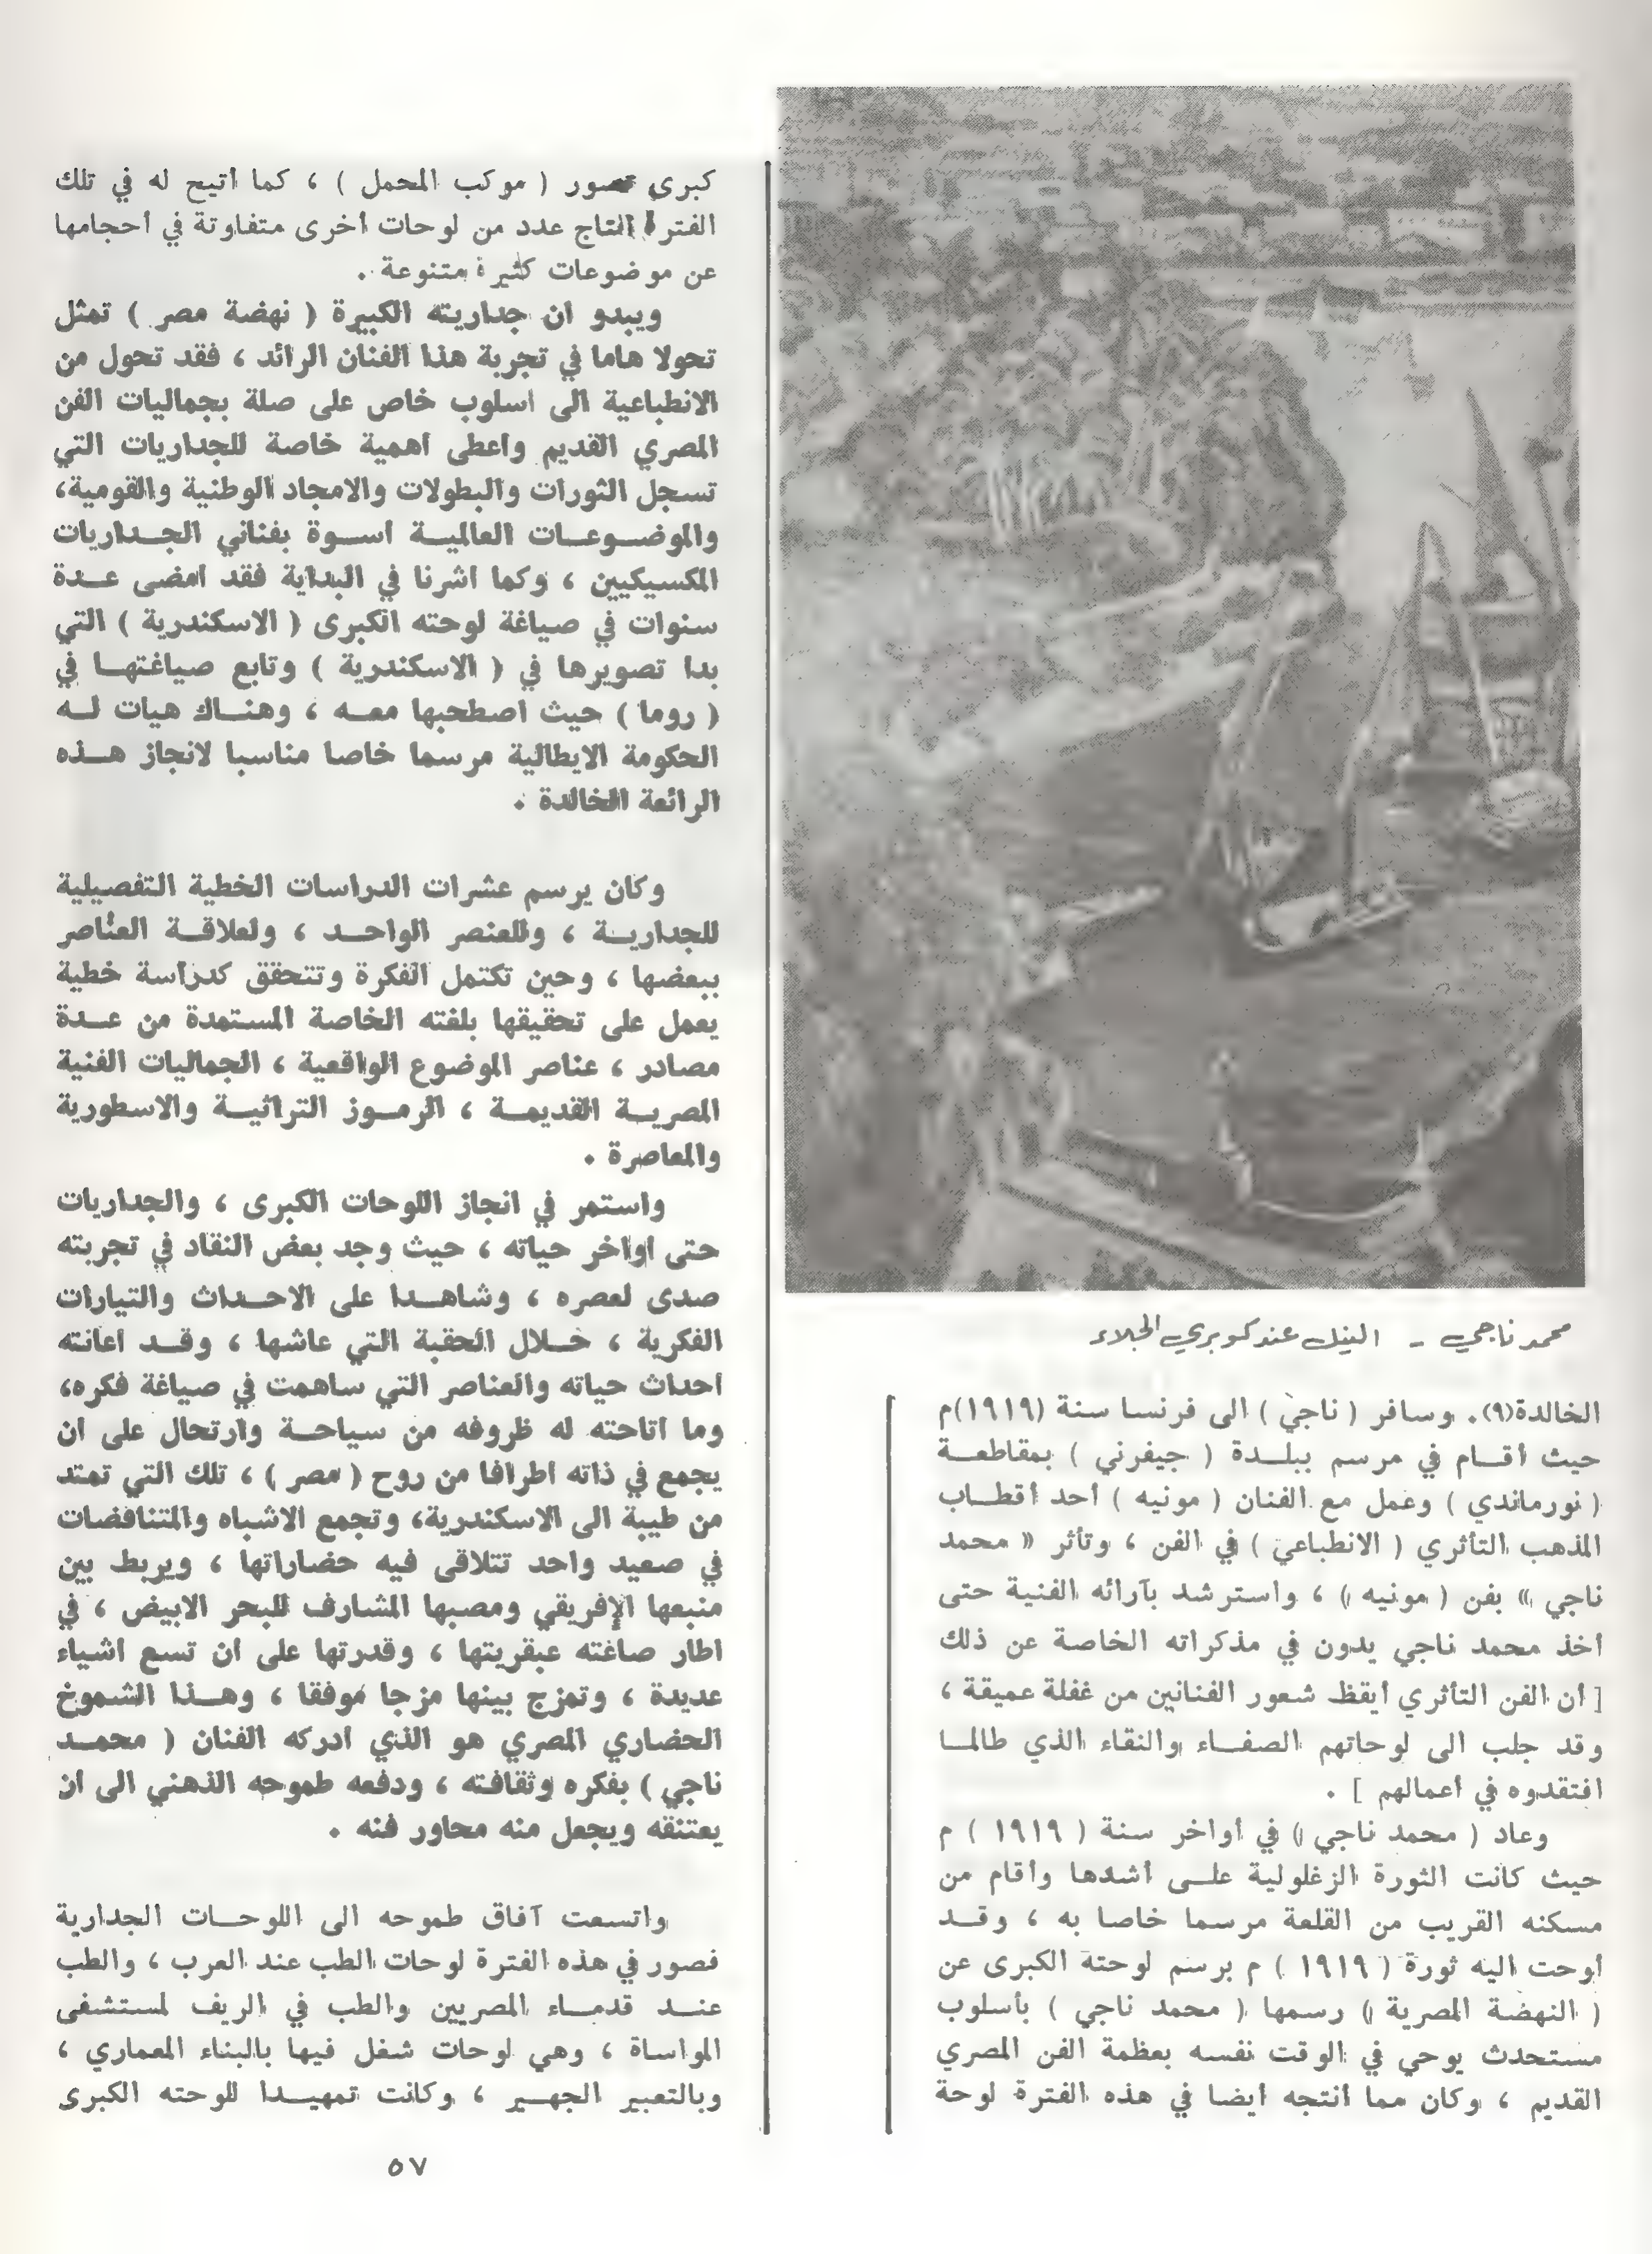 محمد ناجي - النيل عند كوبري الجلاء
الخالدة(٩). وسافر ( ناجي ) الى فرنسا سنة (١٩١٩)م
حيث أقــام في مرسم ببلــدة ( جيفرني ) بمقاطعــة
( نورماندي ) وعمل مع الفنان ( مونيه ) أحد أقطــاب
المذهب التأثري ( الانطباعي ) في الفن ، وتأثر « محمد
ناجي » بفن ( مونيه ) ، واسترشد بآرائه الفنية حتى
أخذ محمد ناجي يدون في مذكراته الخاصة عن ذلك
[ أن الفن التأثري أيقظ شعور الفنانين من غفلة عميقة ،
وقد جلب الى لوحاتهم الصفــاء والنقاء الذي طالمــا
افتقدوه في أعمالهم ] .
وعاد ( محمد ناجي ) في أواخر سنة ( ١٩١٩ ) م
حيث كانت الثورة الزغلولية علــى أشدها وأقام من
مسكنه القريب من القلعة مرسما خاصا به ، وقــد
أوحت اليه ثورة ( ١٩١٩ ) م برسم لوحته الكبرى عن
( النهضة المصرية ) رسمها ( محمد ناجي ) بأسلوب
مستحدث يوحي في الوقت نفسه بعظمة الفن المصري
القديم ، وكان مما أنتجه أيضا في هذه الفترة لوحة
كبرى تصور ( موكب المحمل ) ، كما أتيح له في تلك
الفترة انتاج عدد من لوحات أخرى متفاوتة في أحجامها
عن موضوعات كثيرة متنوعة .
ويبدو ان جداريته الكبيرة ( نهضة مصر ) تمثل
تحولا هاما في تجربة هذا الفنان الرائد ، فقد تحول من
الانطباعية الى اسلوب خاص على صلة بجماليات الفن
المصري القديم واعطى اهمية خاصة للجداريات التي
تسجل الثورات والبطولات والامجاد الوطنية والقومية،
والموضــوعــات العالميــة اســوة بفناني الجــداريات
المكسيكيين ، وكما اشرنا في البداية فقد امضى عــدة
سنوات في صياغة لوحته الكبرى ( الاسكندرية ) التي
بدا تصويرها في ( الاسكندرية ) وتابع صياغتهــا في
( روما ) حيث اصطحبها معــه ، وهنــاك هيات لــه
الحكومة الايطالية مرسما خاصا مناسبا لانجاز هــذه
الرائعة الخالدة .
وكان يرسم عشرات الدراسات الخطية التفصيلية
للجداريــة ، وللعنصر الواحــد ، ولعلاقــة العناصر
ببعضها ، وحين تكتمل الفكرة وتتحقق كدراسة خطية
يعمل على تحقيقها بلغته الخاصة المستمدة من عــدة
مصادر ، عناصر الموضوع الواقعية ، الجماليات الفنية
المصريــة القديمــة ، الرمــوز التراثيــة والاسطورية
والمعاصرة .
واستمر في انجاز اللوحات الكبرى ، والجداريات
حتى اواخر حياته ، حيث وجد بعض النقاد في تجربته
صدى لعصره ، وشاهــدا على الاحــداث والتيارات
الفكرية ، خــلال الحقبة التي عاشها ، وقــد اعانته
احداث حياته والعناصر التي ساهمت في صياغة فكره،
وما اتاحته له ظروفه من سياحــة وارتحال على ان
يجمع في ذاته اطرافا من روح ( مصر ) ، تلك التي تمتد
من طيبة الى الاسكندرية، وتجمع الاشباه والمتناقضات
في صعيد واحد تتلاقى فيه حضاراتها ، ويربط بين
منبعها الإفريقي ومصبها المشارف للبحر الابيض ، في
اطار صاغته عبقريتها ، وقدرتها على ان تسع اشياء
عديدة ، وتمزج بينها مزجا موفقا ، وهــذا الشموخ
الحضاري المصري هو الذي ادركه الفنان ( محمــد
ناجي ) بفكره وثقافته ، ودفعه طموحه الذهني الى ان
يعتنقه ويجعل منه محاور فنه .
واتسعت آفاق طموحه الى اللوحــات الجدارية
فصور في هذه الفترة لوحات الطب عند العرب ، والطب
عنــد قدمــاء المصريين والطب في الريف لمستشفى
المواساة ، وهي لوحات شغل فيها بالبناء المعماري ،
وبالتعبير الجهــير ، وكانت تمهيــدا للوحته الكبرى
٥٧